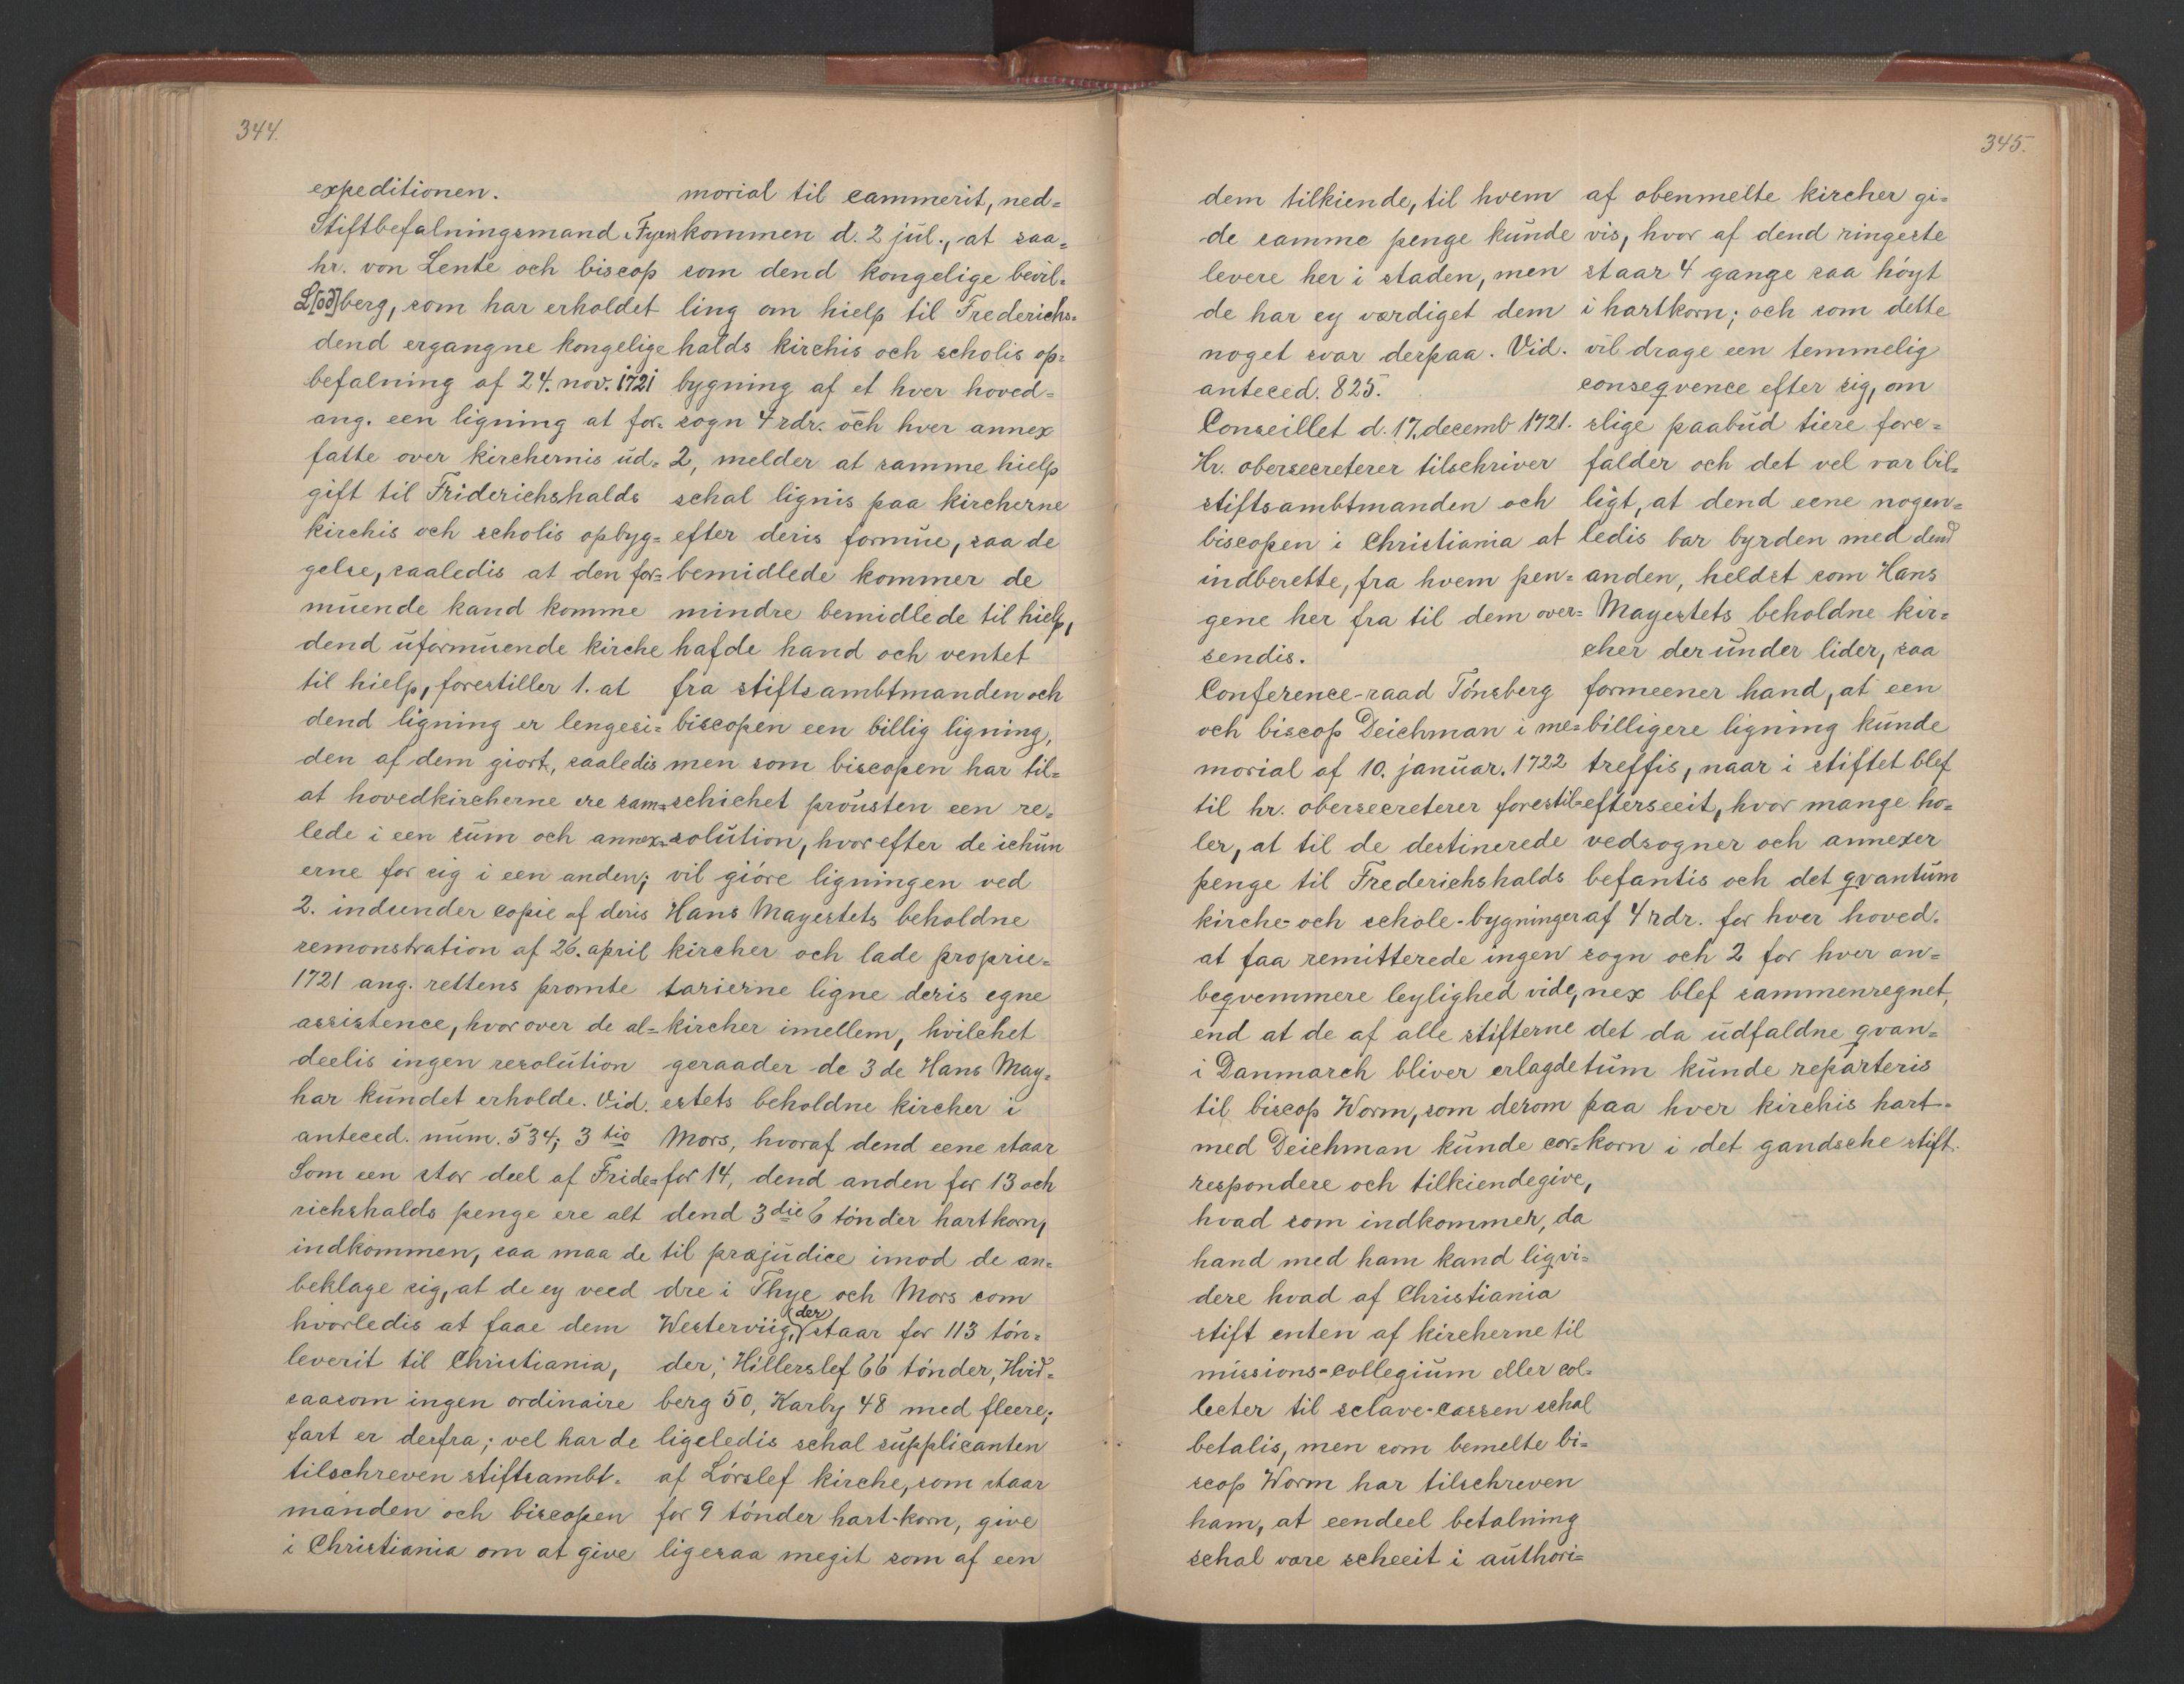 344.
expeditionen.
Stiftbefalningsmand i Fyen
hr. von Lente och biscop
L[od]berg, som har erholdet
dend ergangne kongelige
befalning af 24. nov. 1721
ang. een ligning at for-
fatte over kirchernis ud-
gift til Friderichshalds
kirchis och scholis opbyg=
gelse, saaledis at den for=
muende kand komme
dend uformuende kirche
til hielp, forestiller 1. at
dend ligning er lengesi=
den af dem giort, saaledis
at hovedkircherne ere sam=
lede i een sum och annex=
erne for sig i een anden;
2. indsender copie af deris
remonstration af 26. april
1721 ang. rettens promte
assistence, hvorover de al=
deelis ingen resolution
har kundet erholde. Vid.
anteced. num. 534; 3 tio
Som een stor deel af Fride=
richshalds penge ere alt
indkommen, saa maa de
beklage sig, at de ey veed
hvorledis at faae dem
leverit til Christiania,
saasom ingen ordinaire
fart er derfra; vel har de
tilschreven stiftsambt-
manden och biscopen
i Christiania om at give
morial til cammerit, ned=
kommen d. 2 jul., at saa=
som dend kongelige bevil=
ling om hielp til Frederichs=
halds kirchis och scholis op=
bygning af et hver hoved=
sogn 4 rdr. och hver annex
2, melder at samme hielp
schal lignis paa kircherne
efter deris formue, saa de
bemidlede kommer de
mindre bemidlede til hielp,
hafde hand och ventet
fra stiftsambtmanden och
biscopen een billig ligning,
men som biscopen har til=
schichet prousten een re=
solution, hvorefter de ichun
vil gióre ligningen ved
Hans Mayestets beholdne
kircher och lade proprie=
tarierne ligne deris egne
kircher imellem, hvilchet
geraader de 3 de Hans May=
estets beholdne kircher i
Mors, hvoraf dend eene staar
for 14, dend anden for 13 och
dend 3die 6 tónder hartkorn,
til præjudice imod de an=
dre i Thye och Mors som
Westerviig, (der) staar for 113 tón=
der; Hillerslef 66 tónder, Hvid=
berg 50, Karby 48 med fleere;
ligeledis schal supplicanten
af Lórslef kirche, som staar
for 9 tónder hart-korn, give
ligesaa megit som af een
345.
dem tilkiende, til hvem
de samme penge kunde
levere her i staden, men
de har ey værdiget dem
noget svar derpaa. Vid.
anteced. 825.
Conseillet d. 17. decemb 1721.
Hr. obersecreterer tilschriver
stiftsambtmanden och
biscopen i Christiania at
indberette, fra hvem pen=
gene her fra til dem over=
sendis.
Conference-raad Tónsberg
och biscop Deichman i me=
morial af 10. januar. 1722
til hr. obersecreterer forestil=
ler, at til de destinerede
penge til Frederichshalds
kirche- och schole-bygninger
at faa remitterede ingen
beqvemmere leylighed vide,
end at de af alle stifterne
i Danmarch bliver erlagde
til biscop Worm, som derom
med Deichman kunde cor=
respondere och tilkiendegive,
hvad som indkommer, da
hand med ham kand liqvi=
dere hvad af Christiania
stift enten af kircherne til
missions-collegium eller col=
lecter til sclave-cassen schal
betalis, men som bemelte bi=
scop Worm har tilschreven
ham, at eendeel betalning
schal være scheeit i authori=
af obenmelte kircher gi=
vis, hvor af dend ringeste
staar 4 gange saa hóyt
i hartkorn; och som dette
vil drage een temmelig
conseqvence efter sig, om
slige paabud tiere fore=
falder och det vel var bil=
ligt, at dend eene nogen=
ledis bar byrden med dend
anden, heldst som Hans
Mayestets beholdne kir=
cher derunder lider, saa
formeener hand, at een
billigere ligning kunde
treffis, naar i stiftet blef
efterseeit, hvor mange ho=
vedsogner och annexer
befantis och det qvantum
af 4 rdr. for hver hoved-
sogn och 2 for hver an=
nex blef sammenregnet,
det da udfaldne qvan=
tum kunde reparteris
paa hver kirchis hart-
korn i det gandsche stift.